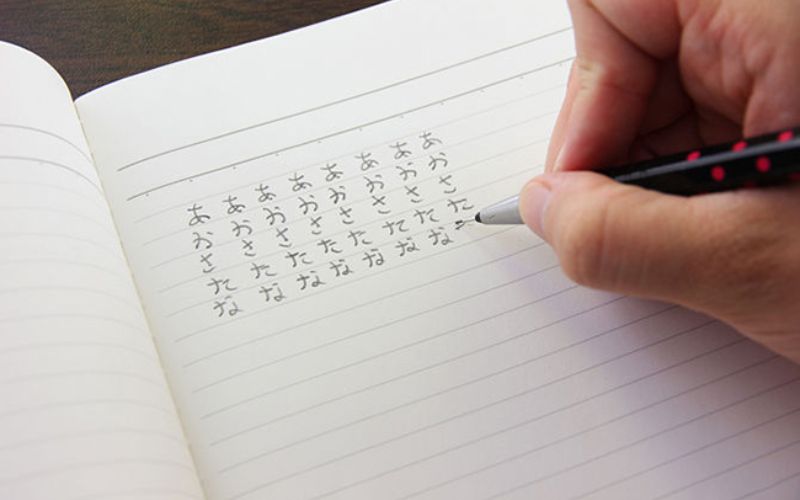 ああああああああ
おおおおおおおお
ささささささささ
たたたたたたたた
ななななななな